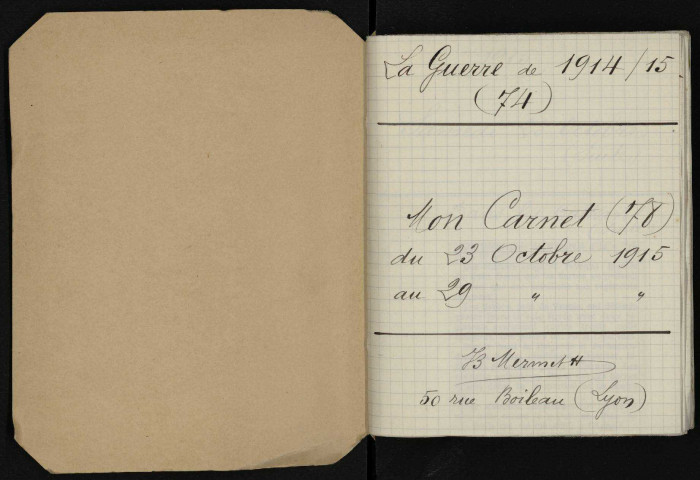 La Guerre de 1914/15
(74)
Mon Carnet (78)
du 23 Octobre 1915
au 29 " "
JB Mermet
50 rue Boileau (Lyon)